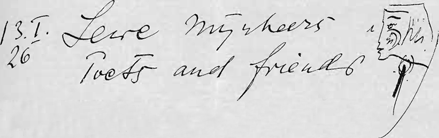 13.I. Lewe Mijnheers
26 Poets and friends